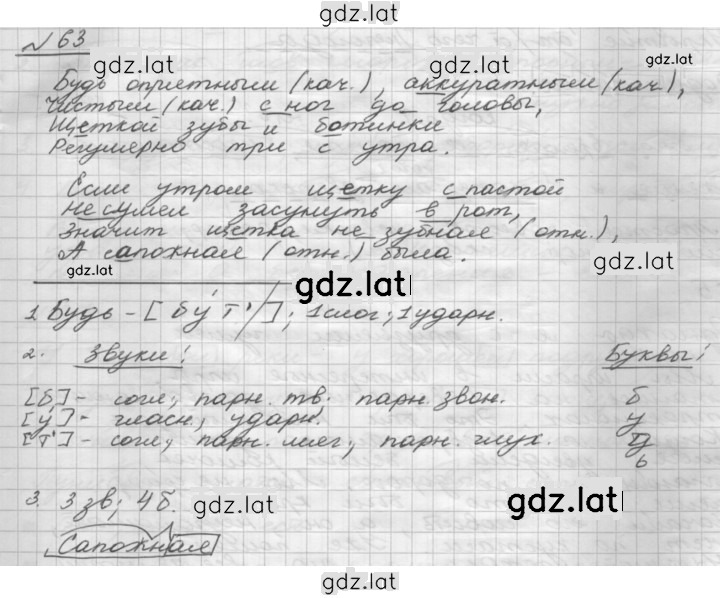 gdz.lat
№ 63
gdz.lat gdz.lat
Будь опрятным (кач.), аккуратным (кач.),
чистым (кач.) с ног до головы,
Щёткой зубы и ботинки
Регулярно три с утра.
Если утром щётку с пастой
не сумел засунуть в рот,
значит щётка не зубная (отн.),
А сапожная (отн.) была.
gdz.lat gdz.lat gdz.lat
1. Будь - [бу́т'/]; 1 слог; 1 ударн.
2. Звуки! Буквы!
[б] - согл., парн. тв. парн. звон. б
[у́] - гласн., ударн. у
[т'] - согл., парн. мяг., парн. глух. д
ь
3. 3 зв; 4 б. gdz.lat gdz.lat
Сапожная
gdz.lat